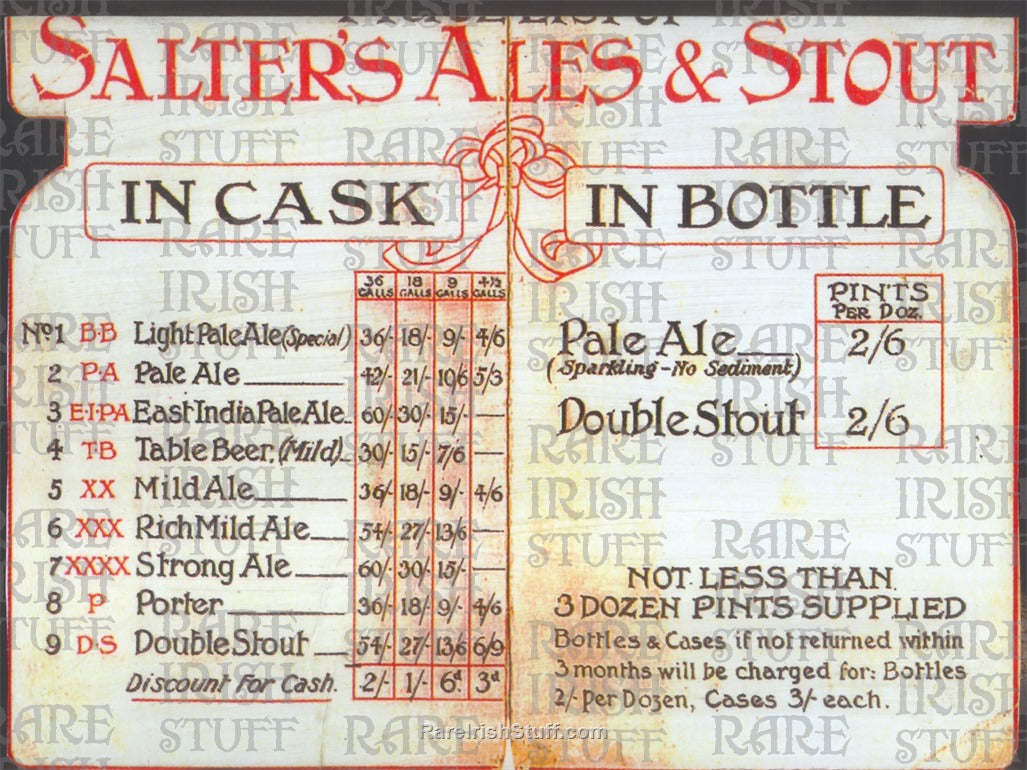 PRICE LIST OF
SALTER'S ALES & STOUT
IN CASK
36 GALLS 18 GALLS 9 GALLS 4½ GALLS
Nº1 B·B Light Pale Ale (Special) 36/- 18/- 9/- 4/6
2 P·A Pale Ale 42/- 21/- 10/6 5/3
3 E·I·PA East India Pale Ale 60/- 30/- 15/- —
4 T·B Table Beer. (Mild) 30/- 15/- 7/6 —
5 XX Mild Ale 36/- 18/- 9/- 4/6
6 XXX Rich Mild Ale 54/- 27/- 13/6 —
7 XXXX Strong Ale 60/- 30/- 15/- —
8 P Porter 36/- 18/- 9/- 4/6
9 D·S Double Stout 54/- 27/- 13/6 6/9
Discount For Cash. 2/- 1/- 6d 3d
IN BOTTLE
PINTS
PER DOZ.
Pale Ale 2/6
(Sparkling - No Sediment)
Double Stout 2/6
NOT LESS THAN
3 DOZEN PINTS SUPPLIED
Bottles & Cases if not returned within
3 months will be charged for: Bottles
2/- per Dozen, Cases 3/- each.
RareIrishStuff.com
RARE IRISH STUFF